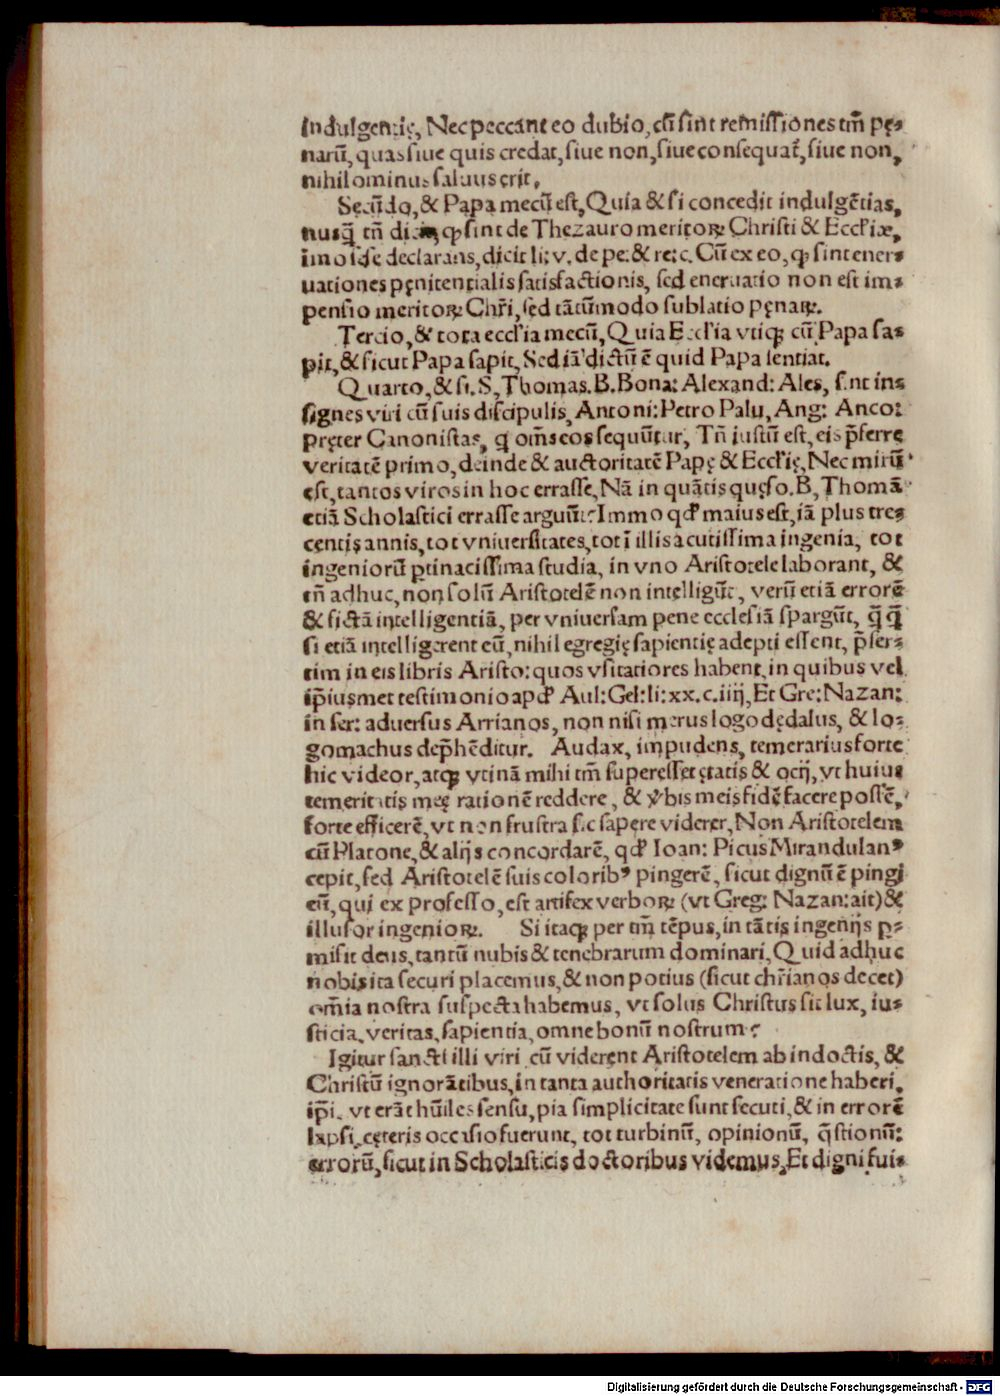 indulgentię, Nec peccant eo dubio, cũ sint remissiones tm̃ pę-
narũ, quas siue quis credat, siue non, siue consequat̃, siue non,
nihilominus saluus erit.
Secũdo, & Papa mecũ est, Quia & si concedit indulgẽtias,
nusq̃ tñ dicit ꝙ sint de Thezauro meritoꝝ Christi & Eccl'iæ,
imo idse declarans, dicit li: v. de pe: & re: c. Cũ ex eo, ꝙ sint ener-
uationes pęnitentialis satisfactionis, sed eneruatio non est im-
pensio meritoꝝ Chr̃i, sed tãtũmodo sublatio pęnaꝝ.
Tercio, & tota eccl'ia mecũ, Quia Eccl'ia vtiqꝫ cũ Papa sa-
pit, & sicut Papa sapit, Sed iã dictũ ẽ quid Papa sentiat.
Quarto, & si. S, Thomas. B. Bona: Alexand: Ales, sint in-
signes viri cũ suis discipulis, Antoni: Petro Palu, Ang: Anco:
pręter Canonistas, q om̃s eos sequũtur, Tñ iustũ est, eis p̃ferre
veritatẽ primo, deinde & auctoritatẽ Papę & Eccl'ię, Nec mirũ
est, tantos viros in hoc errasse, Nã in quãtis quęso. B, Thomã
etiã Scholastici errasse arguũt? Immo qd' maius est, iã plus tre-
centis annis, tot vniuersitates, tot ĩ illis acutissima ingenia, tot
ingeniorũ ꝑtinacissima studia, in vno Aristotele laborant, &
tñ adhuc, non solũ Aristotelẽ non intelligũt, verũ etiã errorẽ
& fictã intelligentiã, per vniuersam pene ecclesiã spargũt, q̃q̃
si etiã intelligerent eũ, nihil egregię sapientię adepti essent, p̃ser-
tim in eis libris Aristo: quos vsitatiores habent, in quibus vel
ip̃iusmet testimonio apd' Aul: Gel: li: xx. c. iiij, Et Gre: Nazan:
in ser: aduersus Arrianos, non nisi merus logodędalus, & lo-
gomachus dep̃hẽditur. Audax, impudens, temerarius forte
hic videor, atqꝫ vtinã mihi tm̃ superesset ętatis & ocij, vt huius
temeritatis meę rationẽ reddere, & ỹbis meis fidẽ facere possẽ,
forte efficerẽ, vt non frustra sic sapere viderer, Non Aristotelem
cũ Platone, & alijs concordarẽ, qd' Ioan: Picus Mirandulanꝰ
cepit, sed Aristotelẽ suis coloribꝰ pingerẽ, sicut dignũ ẽ pingi
eũ, qui ex professo, est artifex verboꝝ (vt Greg: Nazan: ait) &
illusor ingenioꝝ. Si itaqꝫ per tm̃ tẽpus, in tãtis ingenijs ꝑ-
misit deus, tantũ nubis & tenebrarum dominari, Quid adhuc
nobis ita securi placemus, & non potius (sicut chr̃ianos decet)
om̃ia nostra suspecta habemus, vt solus Christus sit lux, iu-
sticia, veritas, sapientia, omne bonũ nostrum?
Igitur sancti illi viri cũ viderent Aristotelem ab indoctis, &
Christũ ignorãtibus, in tanta authoritatis veneratione haberi,
ip̃i, vt erãt hũiles sensu, pia simplicitate sunt secuti, & in errorẽ
lapsi, cęteris occasio fuerunt, tot turbinũ, opinionũ, q̃stionũ:
errorũ, sicut in Scholasticis doctoribus videmus, Et digni fui-
Digitalisierung gefördert durch die Deutsche Forschungsgemeinschaft - DFG